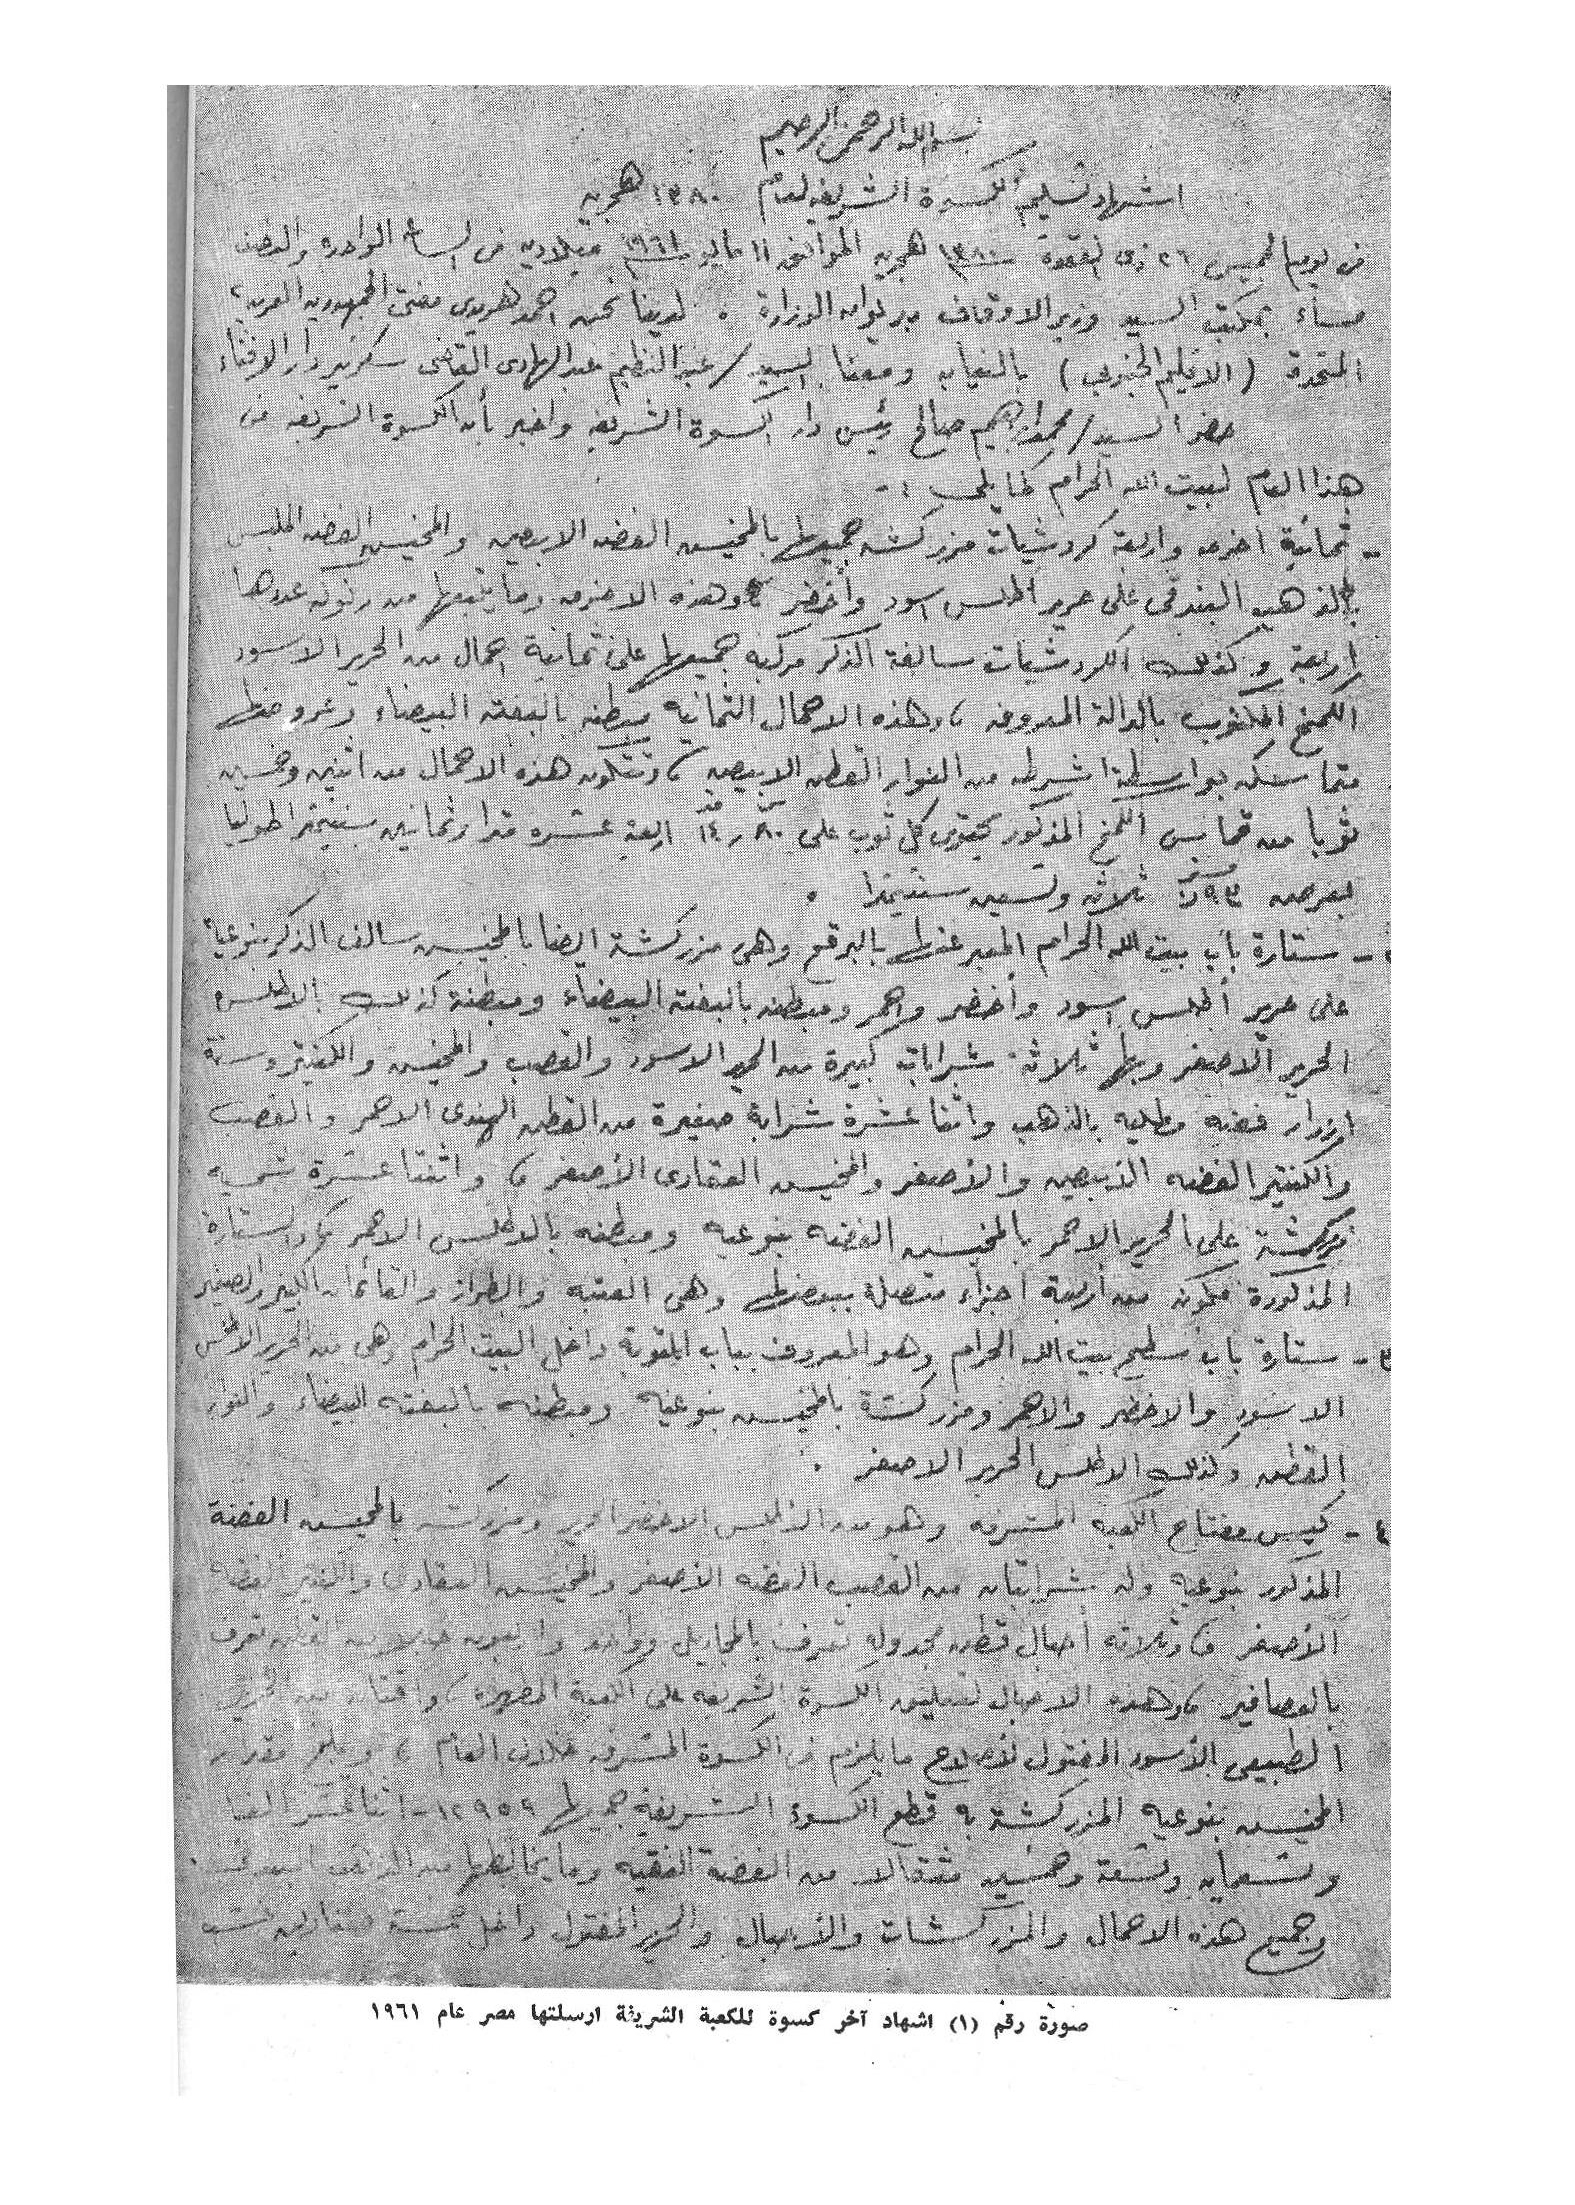 بسم الله الرحمن الرحيم
اشهاد تسليم الكسوة الشريفة لعام ١٣٨٠ هجرية
فى يوم الخميس ٢٦ ذى القعدة سنة ١٣٨٠ هجرية الموافق ١١ مايو سنة ١٩٦١ ميلادية فى الساعة الواحدة والنصف
مساء بمكتب السيد وزير الاوقاف بديوان الوزارة . لدينا نحن احمد هريدى مفتى الجمهورية العربية
المتحدة (الاقليم الجنوبى) بالنيابة ومعنا السيد / عبد العظيم عبد الهادى القاضى سكرتير دار الافتاء
حضر السيد / محمد ابراهيم صالح رئيس دار الكسوة الشريفة واخبر بأن الكسوة الشريفة فى
هذا العام لبيت الله الحرام كما يلى :-
- ثمانية احزمة واربعة كردشيات مزركشة جميعها بالمخيش الفضة الابيض والمخيش الفضة الملبس
بالذهب البندقى على حرير اطلس اسود وأخضر ، وهذه الاحزمة وما يتبعها من رنوك عددها
اربعة وكذلك الكردشيات سالفة الذكر مركبة جميعها على ثمانية احمال من الحرير الاسود
الكمخ المكتوب بالدالة المعروفة ، وهذه الاحمال الثمانية مبطنة بالبفته البيضاء وعروضها
متماسكة بواسطة اشرطة من النوار القطن الابيض ، وتتكون هذه الاحمال من اثنين وخمسين
ثوبا من قماش الكمخ المذكور يحتوى كل ثوب على ١٤٫٨٠ اربعة عشر مترا وثمانين سنتيمترا طوليا
بعرض ٩٣ر٠ ثلاثة وتسعين سنتيمترا .
- ستارة باب بيت الله الحرام المعبر عنها بالبرقع وهى مزركشة ايضا بالمخيش سالف الذكر بنوعيه
على حرير أطلس اسود وأخضر واحمر ومبطنة بالبفتة البيضاء ومبطنة كذلك بالاطلس
الحرير الاصفر وبها ثلاثة شرابات كبيرة من الحرير الاسود والقصب والمخيش والكنتير وستة
ازرار فضة مطلية بالذهب واثنا عشرة شرابة صغيرة من القطن الهندى الاحمر والقصب
والكنتير الفضة الأبيض والأصفر والمخيش العقادى الأصفر ، واثنتا عشرة شمسية
مزركشة على الحرير الاحمر بالمخيش الفضة بنوعيه ومبطنة بالاطلس الاحمر ، والستارة
المذكورة مكونة من أربعة اجزاء متصلة ببعضها وهى العتبة والطراز والقائمان الكبير والصغير
٣- ستارة باب سطح بيت الله الحرام وهو المعروف بباب التوبة داخل البيت الحرام وهى من الحرير الاطلس
الاسود والاخضر والاحمر ومزركشة بالمخيش بنوعيه ومبطنة بالبفتة البيضاء والنوار
القطن وكذلك الاطلس الحرير الاصفر .
٤- كيس مفتاح الكعبة المشرفة وهو من الأطلس الاخضر الحرير ومزركش بالمخيش الفضة
المذكور بنوعيه وله شرابتان من القصب الفضة الأصفر والمخيش العقادى والكنتير الفضة
الأصفر ، وثلاثة أحبال قطن مجدولة تعرف بالمجاديل وواحد واربعون حبلا من القطن تعرف
بالعصافير ، وهذه الاحبال لتعليق الكسوة الشريفة على الكعبة المطهرة ، من الحرير
الطبيعى الأسود المفتول لأصلاح ما يلزم فى الكسوة المشرفة خلال العام ، ويبلغ مقدار
المخيش بنوعيه المزركشة به قطع الكسوة الشريفة جميعها ١٢٩٥٩- اثنا عشر الفا
وتسعمائة وتسعة وخمسين مثقالا من الفضة النقية وما يخالطها من الذهب البندقى
وجميع هذه الاحمال والمزركشات والأحبال والحرير المفتول داخل خمسة صناديق خشب
صورة رقم (١) اشهاد آخر كسوة للكعبة الشريفة ارسلتها مصر عام ١٩٦١